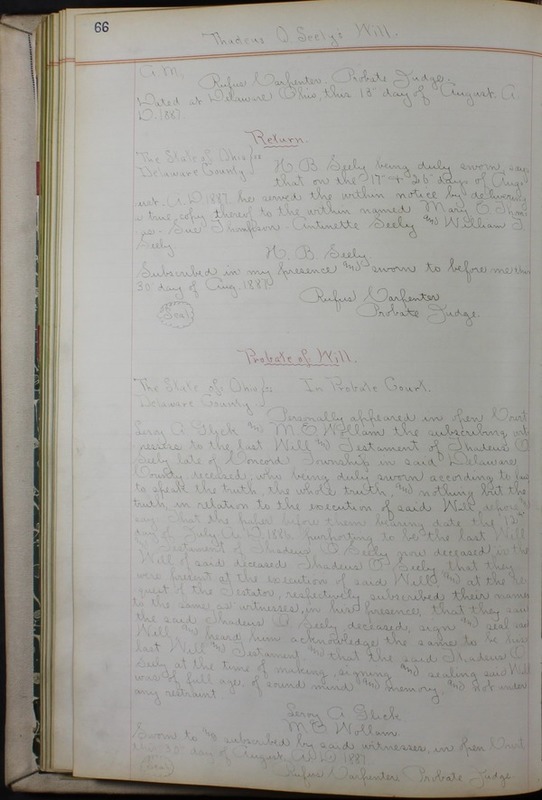 66
Thadeus O Seely's Will.
A.M.
Rufus Carpenter, Probate Judge.
Dated at Delaware Ohio, this 13" day of August. A.
D. 1887
Return.
The State of Ohio } ss
Delaware County } H. B. Seely being duly sworn, says
that on the 17 & 26 days of Aug
ust. A.D. 1887 he served the within notice by delivering
a true copy thereof to the within named Mary E.
Sue Thompson Antinette Seely and William
Seely
H. B. Seely
Subscribed in my presence and sworn to before me this
30" day of Aug. 1887
Rufus Carpenter
Seal
Probate Judge.
Probate of Will.
The State of Ohio } ss In Probate Court.
Delaware County.
Personally appeared in open Court
Leroy A Glick and M. B Wollam the subscribing wit
nesses to the last Will and Testament of Thadeus O
Seely late of Concord Township in said Delaware
County deceased, who being duly sworn according to law
to speak the truth, the whole truth, and nothing but the
truth, in relation to the execution of said Will, depose &
say: That the paper before them bearing date the 12"
day of July A.D. 188 purporting to be the last Will
& Testament of Thadeus O Seely now deceased is the
Will of said deceased Thadeus O Seely, that they
were present at the execution of said Will and at the re
quest of the Testator, respectively subscribed their names
to the same, as witnesses, in his presence, that they saw
the said Thadeus O Seely deceased, sign and seal said
Will, and heard him acknowledge the same to be his
last Will and Testament and that the said Thadeus O
Seely at the time of making, signing and sealing said Will
was of full age, of sound mind and memory, and not under
any restraint
Leroy A Glick
M. B Wollam.
Sworn to and subscribed by said witnesses, in open Court
this 30" day of August A.D. 1887
Seal
Rufus Carpenter Probate Judge.